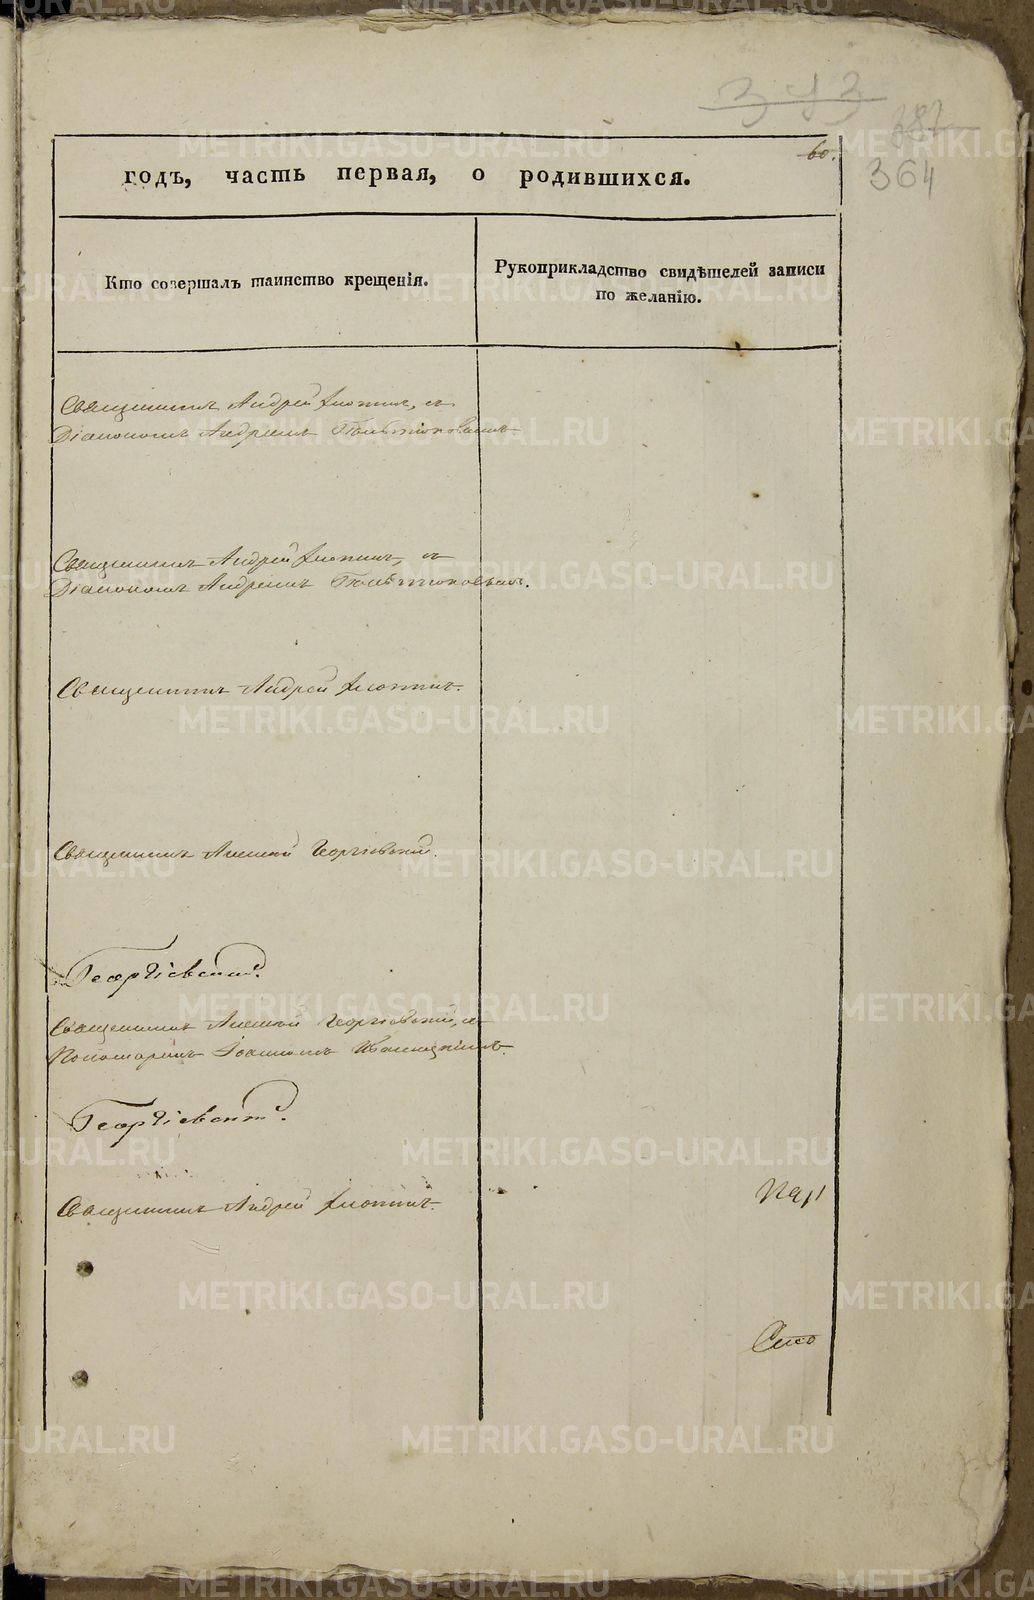 343
382
60.
364
годъ, часть первая, о родившихся.
Кто совершалъ таинство крещенія.
Рукоприкладство свидѣтелей записи
по желанію.
Священникъ Андрей
Діакономъ Андреемъ
Священникъ Андрей
Діакономъ Андреемъ
Священникъ Андрей
Священникъ Алексей Георгіевскій.
Георгіевскій.
Священникъ Алексей Георгіевскій, съ
Пономаремъ Іоанномъ
Георгіевскій.
Священникъ Андрей
METRIKI.GASO-URAL.RU